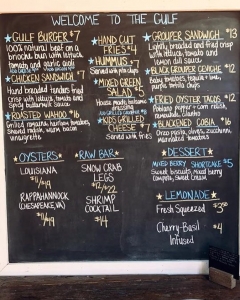 WELCOME TO THE GULF
GULF BURGER $7
100% natural beef on a
brioche bun with lettuce,
tomato and garlic aioli
CHICKEN SANDWICH $7
Hand breaded tenders fried
crisp with lettuce, tomato and
Spicy buttermilk
ROASTED WAHOO $16
Grilled romaine, heirloom tomatoes,
shaved radish, warm bacon
vinaigrette
HAND CUT
FRIES $4
HUMMUS $7
Served with pita chips
MIXED GREEN
SALAD $5
House made balsamic
dressing
KIDS GRILLED
CHEESE $7
Served w/ fries
GROUPER SANDWICH $13
Lightly breaded and fried crisp
with lettuce, tomato and
lemon dill sauce
BLACK GROUPER CEVICHE $12
Baby tomatoes, tequila + lime,
purple taro chips
FRIED OYSTER TACOS $12
Poblano pepper corn salsa,
BLACKENED COBIA $16
Orzo pasta, olives, zucchini,
marinated tomatoes
OYSTERS
LOUISIANA
RAPPAHANNOCK
(CHESAPEAKE, VA)
RAW BAR
SNOW CRAB
LEGS
$12/$22
SHRIMP
COCKTAIL
DESSERT
MIXED BERRY SHORTCAKE $5
Sweet biscuits, mixed berry
compote, Sweet Cream
LEMONADE
Fresh Squeezed $3.50
Cherry-Basil
Infused $4